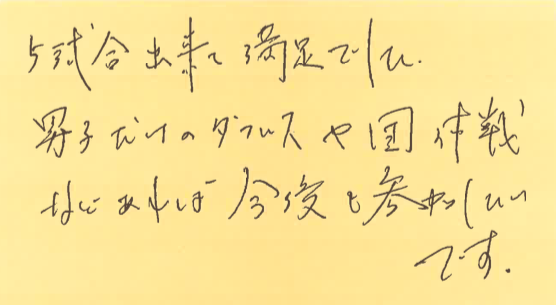 5試合出来て満足でした.
男子だけのダブルスや団体戦
などあれば今後も参加したい
です.